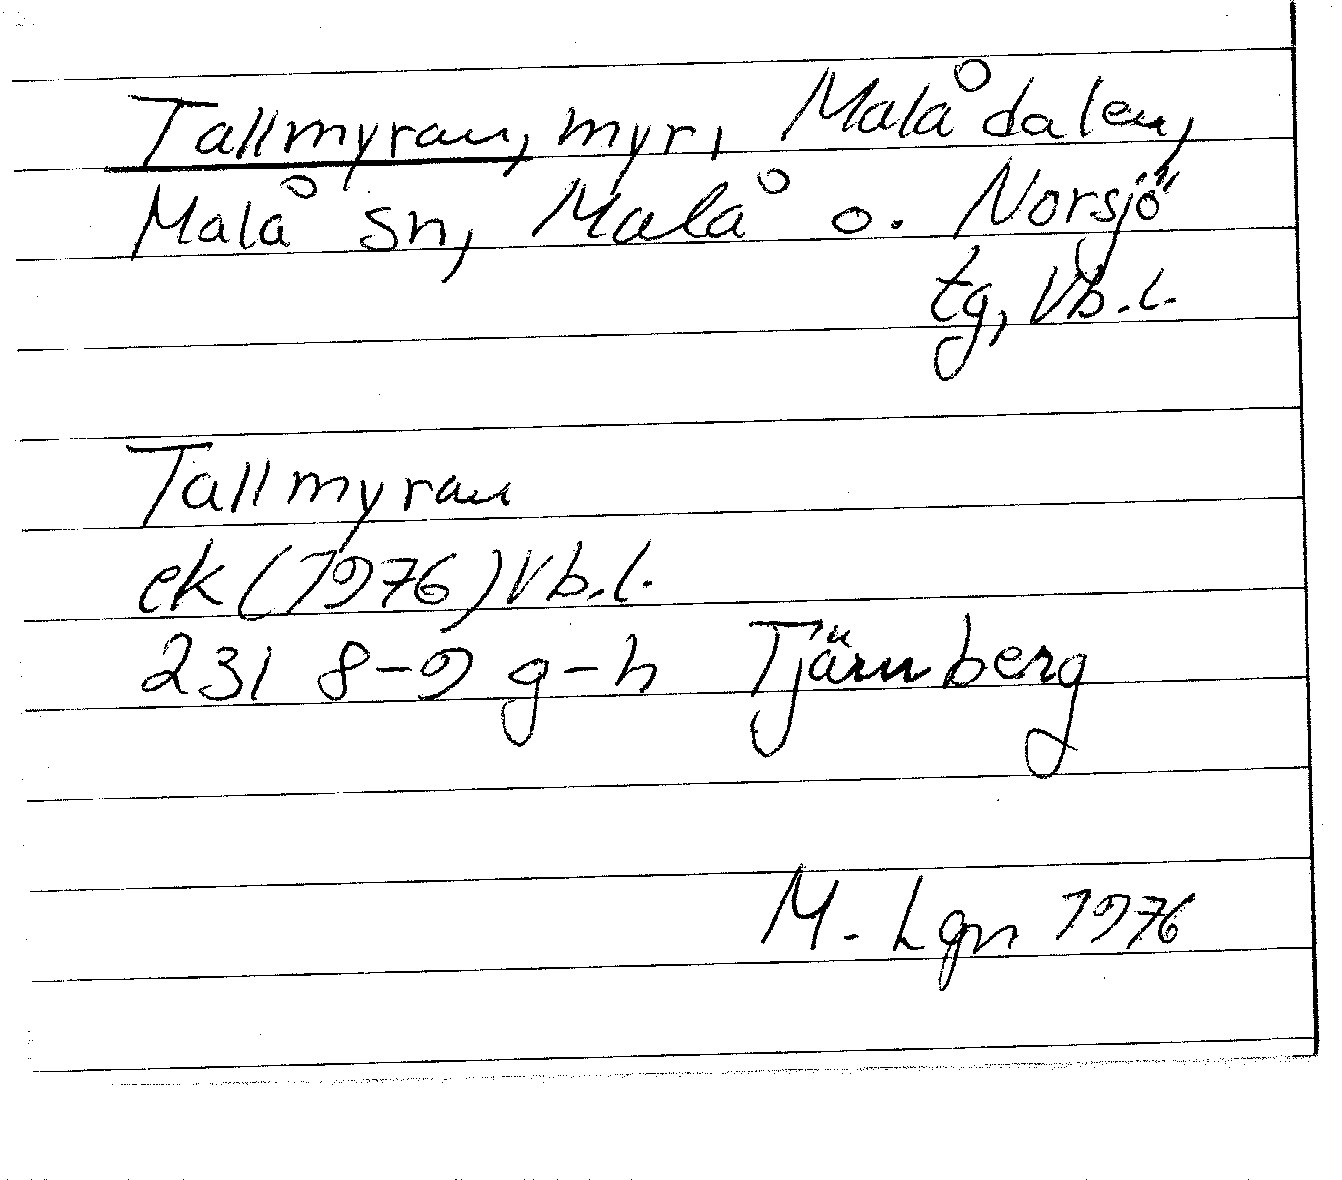 Tallmyran, myr, Malådalen,
Malå sn, Malå o. Norsjö
tg, Vb.l.
Tallmyran
ek (1976) Vb.l.
23I 8-9 g-h Tjärnberg
M. Lgn 1976